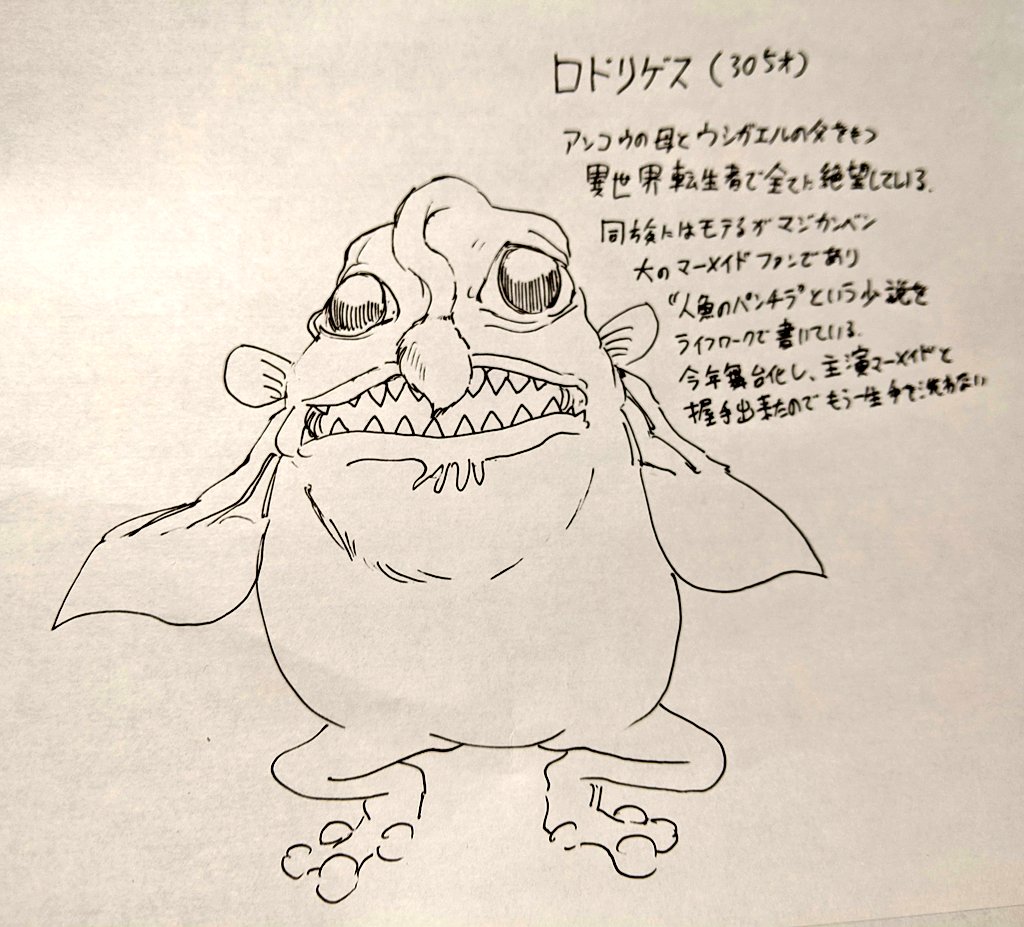 ロドリゲス（305才）
アンコウの母とウシガエルの父をもつ
異世界転生者で全てに絶望している.
同族にはモテるがマジカンベン
大のマーメイドファンであり
"人魚のパンチラ"という小説を
ライフワークで書いている.
今年舞台化し、主演マーメイドと
握手出来たのでもう一生手で洗わない